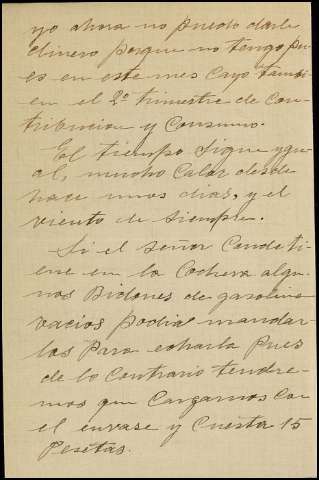 yo ahora no puedo darle
dinero porque no tengo pu
es en este mes cayo tambi
en el 2º trimestre de Con
tribucion y Consumo.
El tiempo sigue ygu
al, mucho Calor desde
hace unos dias, y el
viento de siempre.
Si el señor Conde ti
ene en la Cochera algu
nos Bidones de gasolina
vacios podia mandar
los para echarla pues
de lo Contrario tendre
mos que Cargarnos Con
el envase y Cuesta 15
Pesetas.